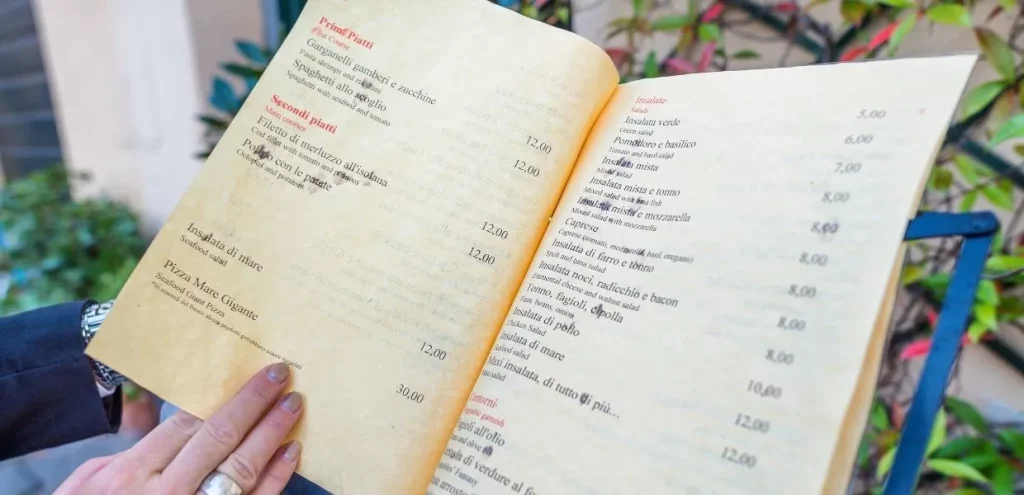 Primi Piatti
First Course
Garganelli gamberi e zucchine
Pasta shrimps and
Spaghetti allo scoglio
Spaghetti with seafood and tomato
Secondi piatti
Main courses
Filetto di merluzzo all'isolana
Cod fillet with tomato and potatoes
Polipo con le patate
Octopus and potatoes
Insalata di mare
Seafood salad
Pizza Mare Gigante
Seafood Giant Pizza
12,00
12,00
12,00
12,00
12,00
30,00
Insalate
Salads
Insalata verde
Green salad
Pomodoro e basilico
Tomato and basil salad
Insalata mista
Mixed salad
Insalata mista e tonno
Mixed salad with tuna fish
Insalata mista e mozzarella
Mixed salad with mozzarella
Caprese
Caprese (tomato, mozzarella, basil, oregano)
Insalata di farro e tonno
Spelt and tuna salad
Insalata noci, radicchio e bacon
Emmental cheese and walnut salad
Tonno, fagioli, cipolla
Tuna, beans, onion
Insalata di pollo
Chicken Salad
Insalata di mare
seafood salad
Maxi insalata, di tutto di più...
salad
5,00
6,00
7,00
8,00
8,00
8,00
8,00
8,00
10,00
12,00
12,00
Contorni
garnish
all'olio
di verdure al